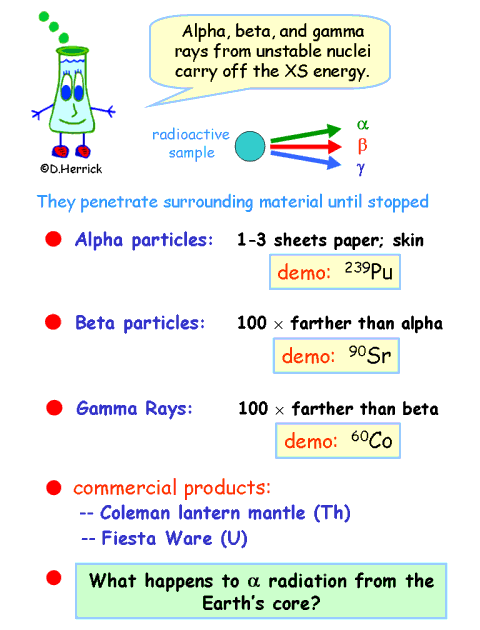 Alpha, beta, and gamma
rays from unstable nuclei
carry off the XS energy.
radioactive
sample
α
β
γ
©D.Herrick
They penetrate surrounding material until stopped
Alpha particles: 1-3 sheets paper; skin
demo: ²³⁹Pu
Beta particles: 100 × farther than alpha
demo: ⁹⁰Sr
Gamma Rays: 100 × farther than beta
demo: ⁶⁰Co
commercial products:
-- Coleman lantern mantle (Th)
-- Fiesta Ware (U)
What happens to α radiation from the
Earth's core?